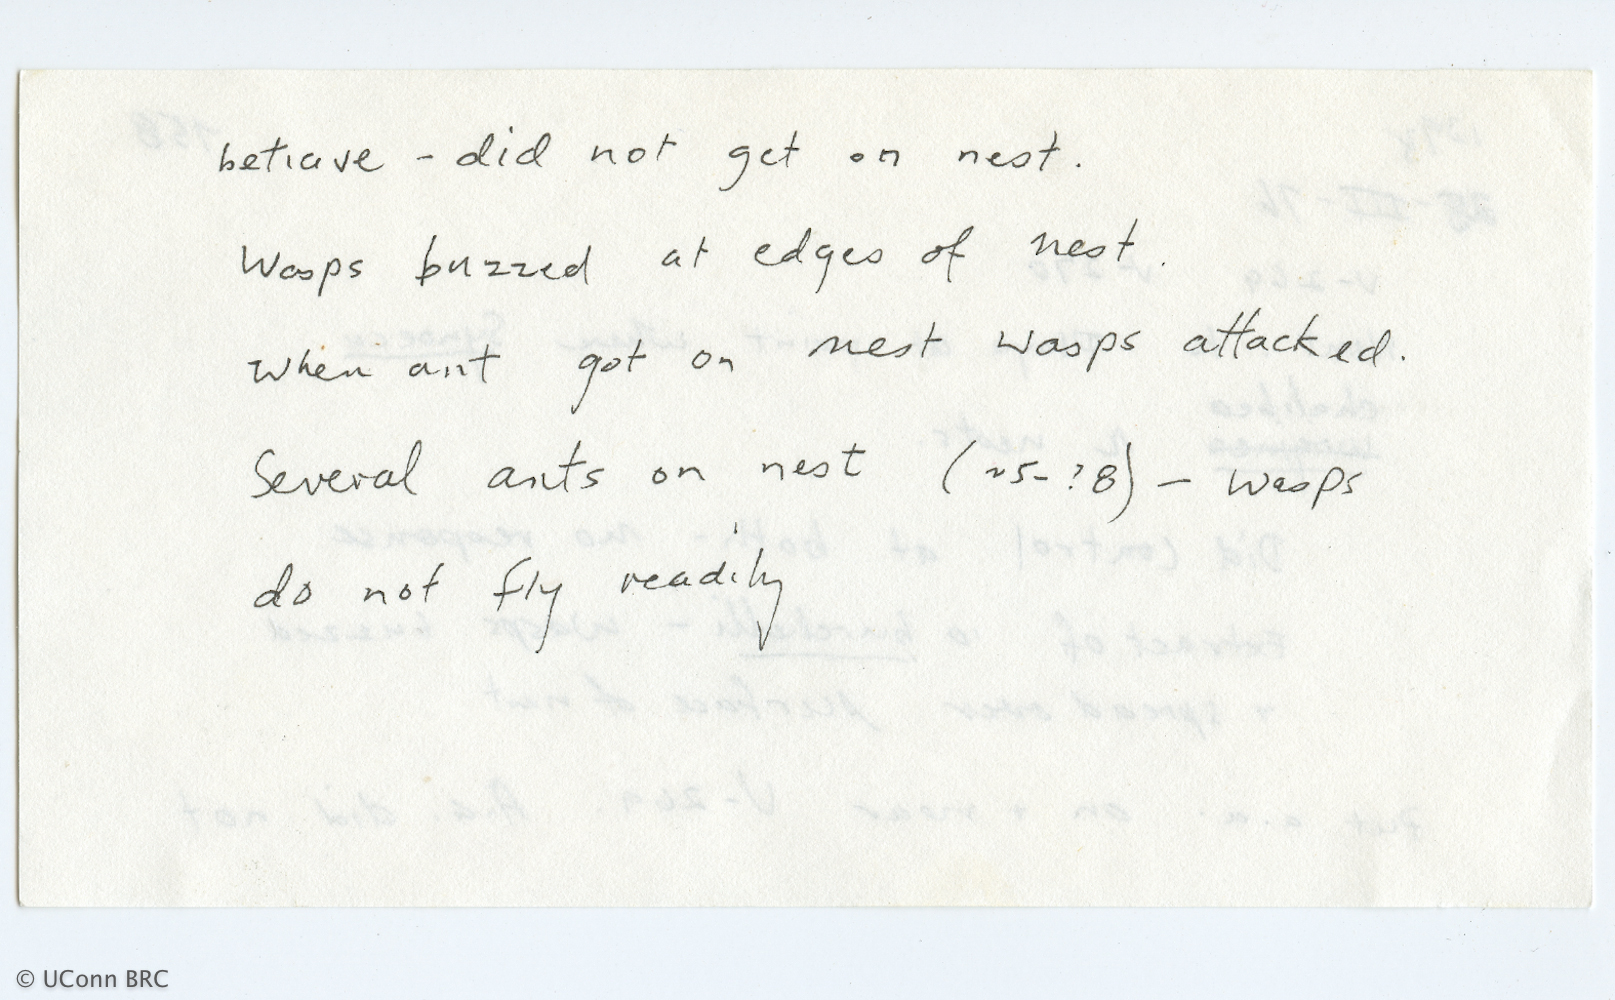 behave - did not get on nest.
Wasps buzzed at edges of nest.
When ant got on nest wasps attacked.
Several ants on nest (~5-?8) - wasps
do not fly readily
© UConn BRC